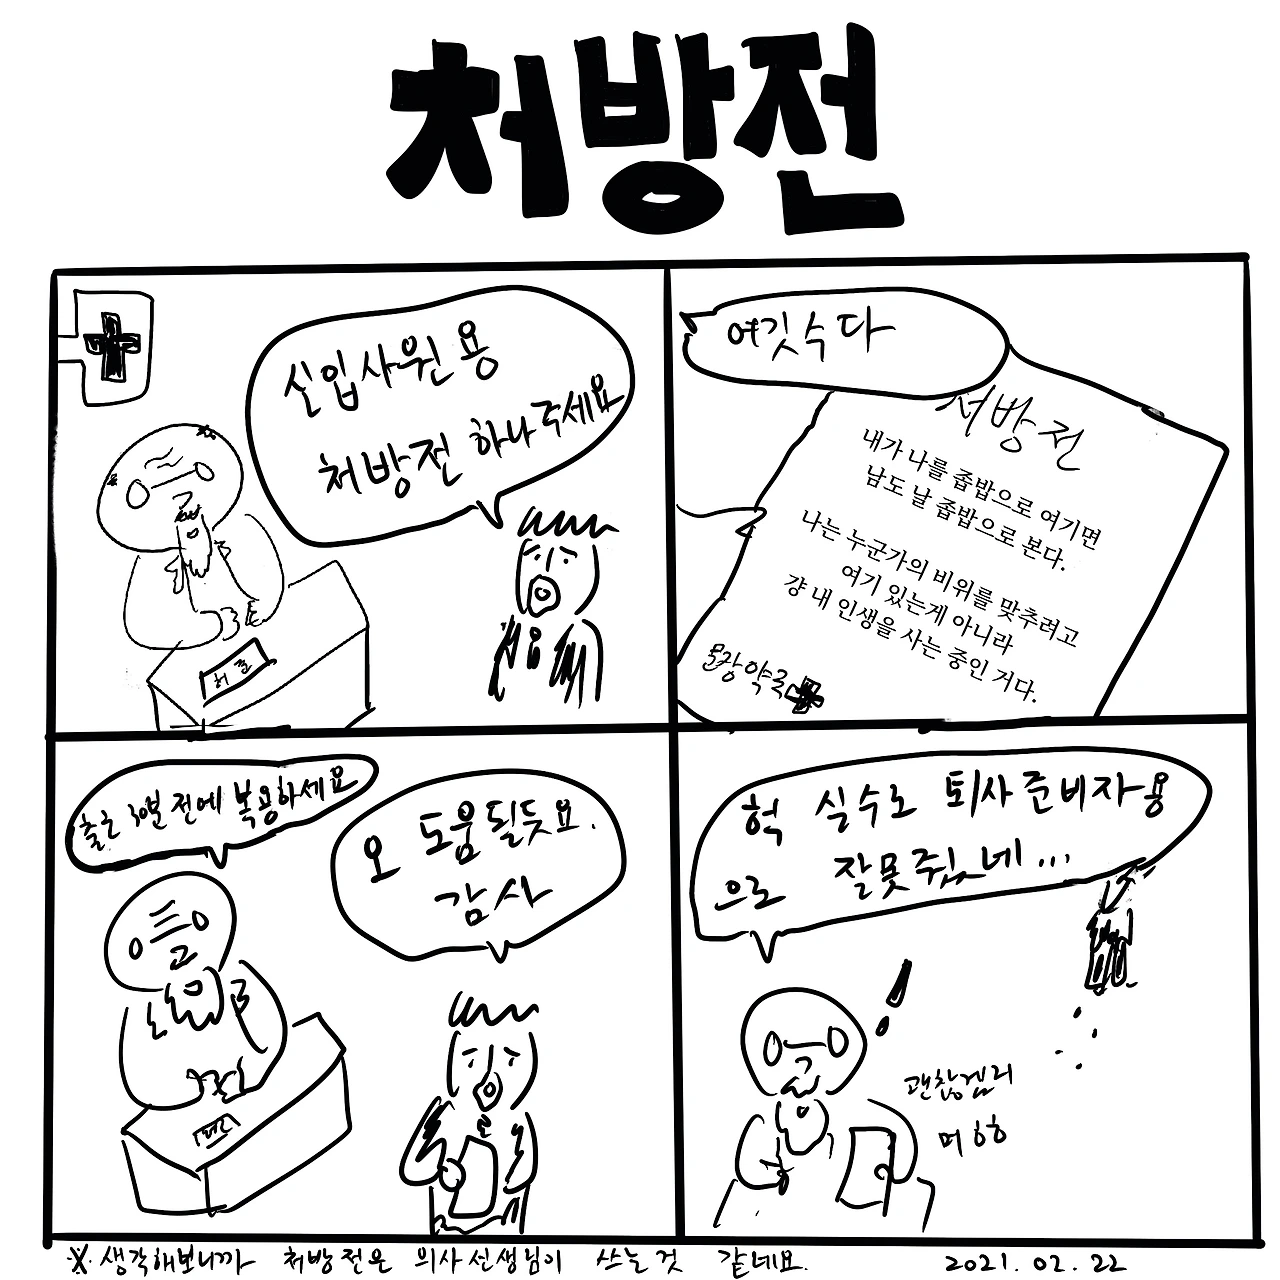 처방전
신입사원용
처방전 하나 주세요
허준
여깃수다
처방전
내가 나를 좁밥으로 여기면
남도 날 좁밥으로 본다.
나는 누군가의 비위를 맞추려고
여기 있는게 아니라
걍 내 인생을 사는 중인 거다.
문장약국
출근 30분 전에 복용하세요
오 도움될듯요.
감사
헉 실수로 퇴사준비자용
으로 잘못줬네...
괜찮겠지
머 ㅎㅎ
※생각해보니까 처방전은 의사선생님이 쓰는것 같네요. 2021.02.22